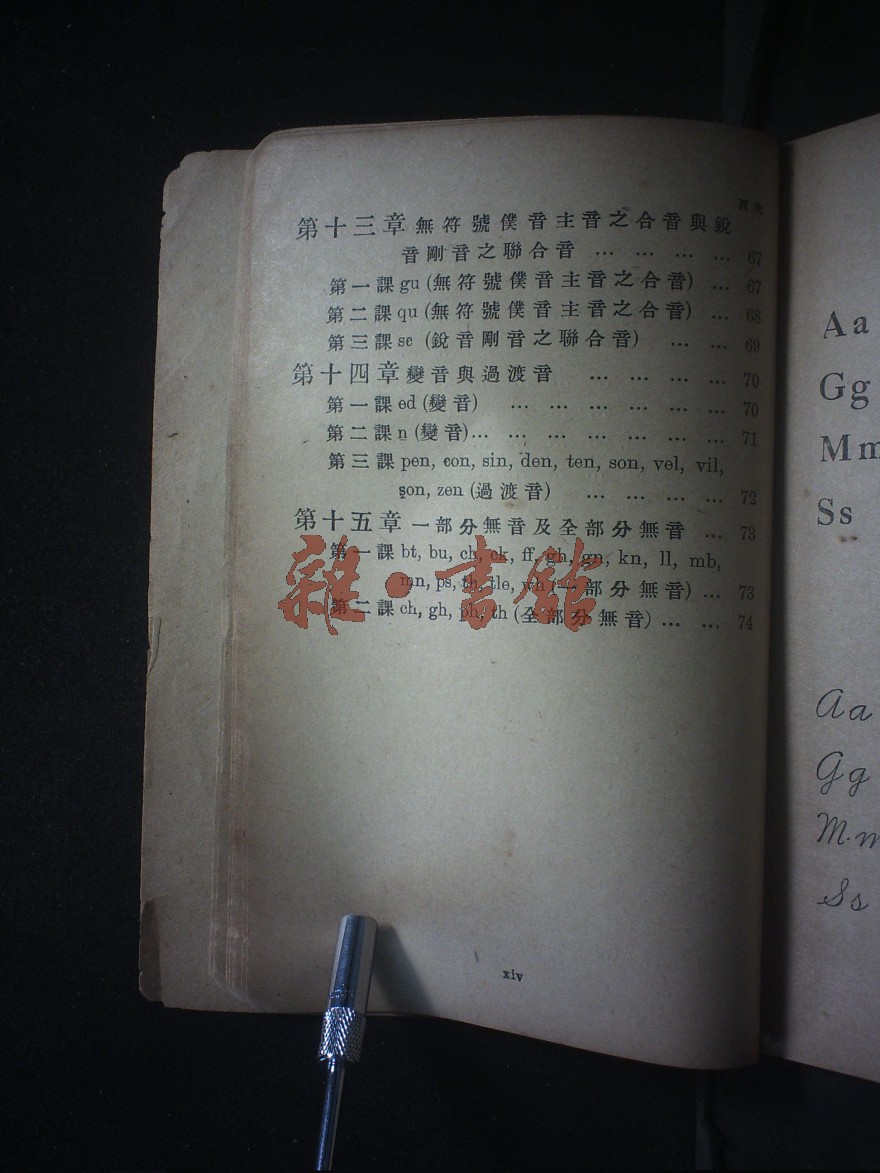 頁次
第十三章 無符號僕音主音之合音與銳
音剛音之聯合音 … … … … 67
第一課 gu (無符號僕音主音之合音) … 67
第二課 qu (無符號僕音主音之合音) … 68
第三課 se (銳音剛音之聯合音) … … 69
第十四章 變音與過渡音 … … … … 70
第一課 ed (變音) … … … … … … 70
第二課 n (變音)… … … … … … … 71
第三課 pen, con, sin, den, ten, son, vel, vil,
şon, zen (過渡音) … … … … 72
第十五章 一部分無音及全部分無音 … 73
第一課 bt, bu, ch, ck, ff, gh, gn, kn, ll, mb,
mn, ps, th, tle, wh (一部分無音) … 73
第二課 ch, gh, ph, th (全部分無音) … … 74
雜·書館
xiv
Aa
Gg
Mm
Ss
Aa
Gg
Mm
Ss